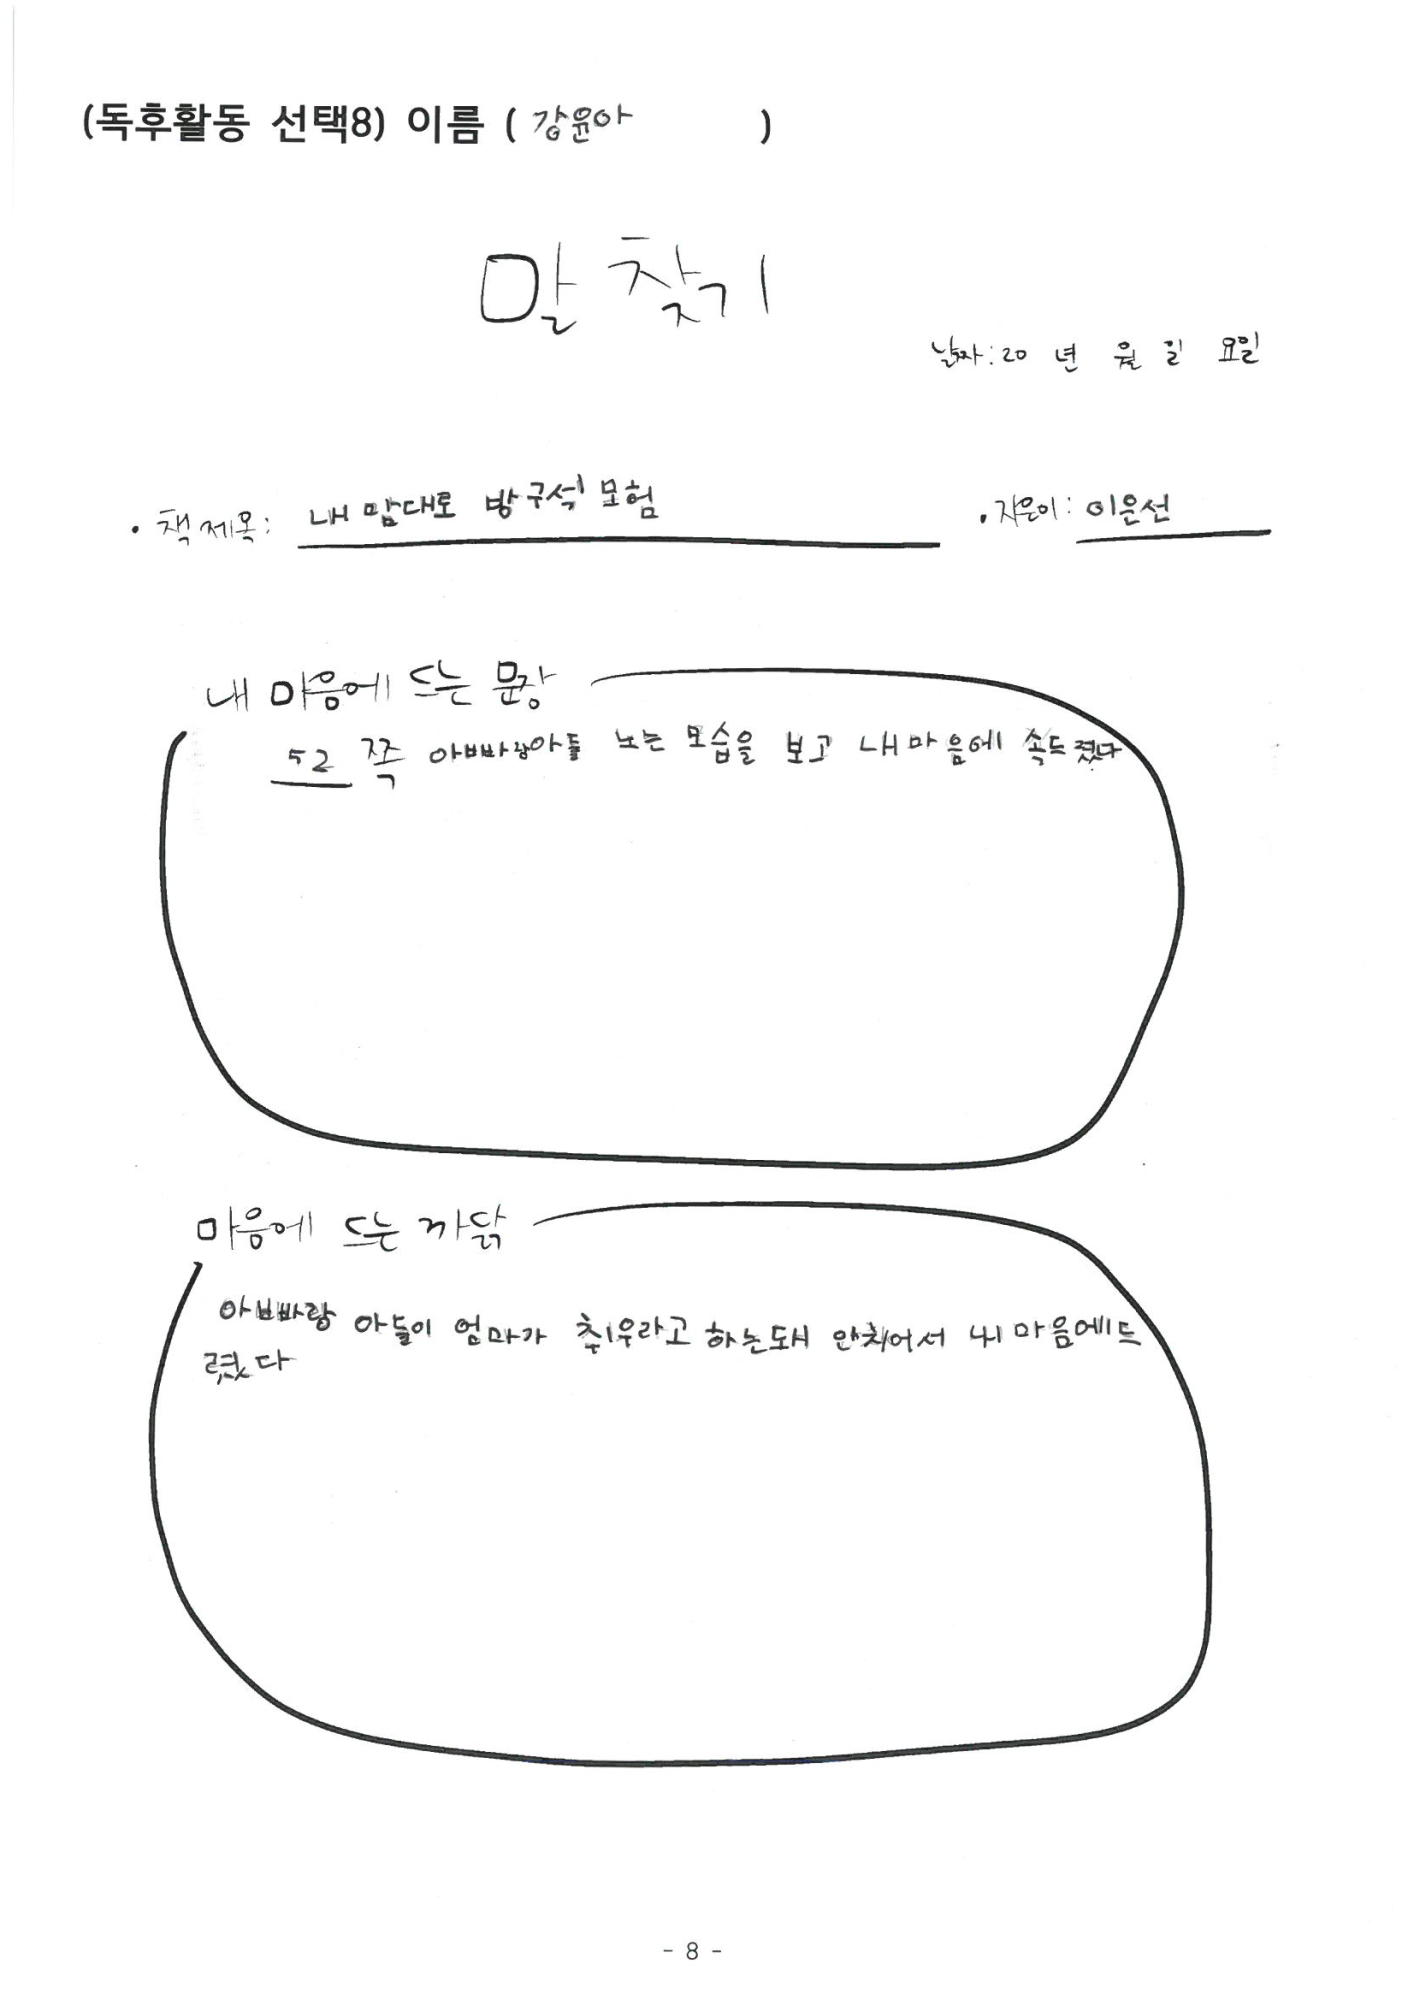 (독후활동 선택8) 이름 ( 강윤아 )
말 찾기
날짜:20 년 월 일 요일
• 책 제목: 내 맘대로 방구석 모험 • 지은이: 이은선
내 마음에 드는 문장
52 쪽 아빠랑아들 노는 모습을 보고 내마음에 쏙드렸다
마음에 드는 까닭
아빠랑 아들이 엄마가 취우라고 하는도새 안취어서 내 마음에드
렸다
- 8 -